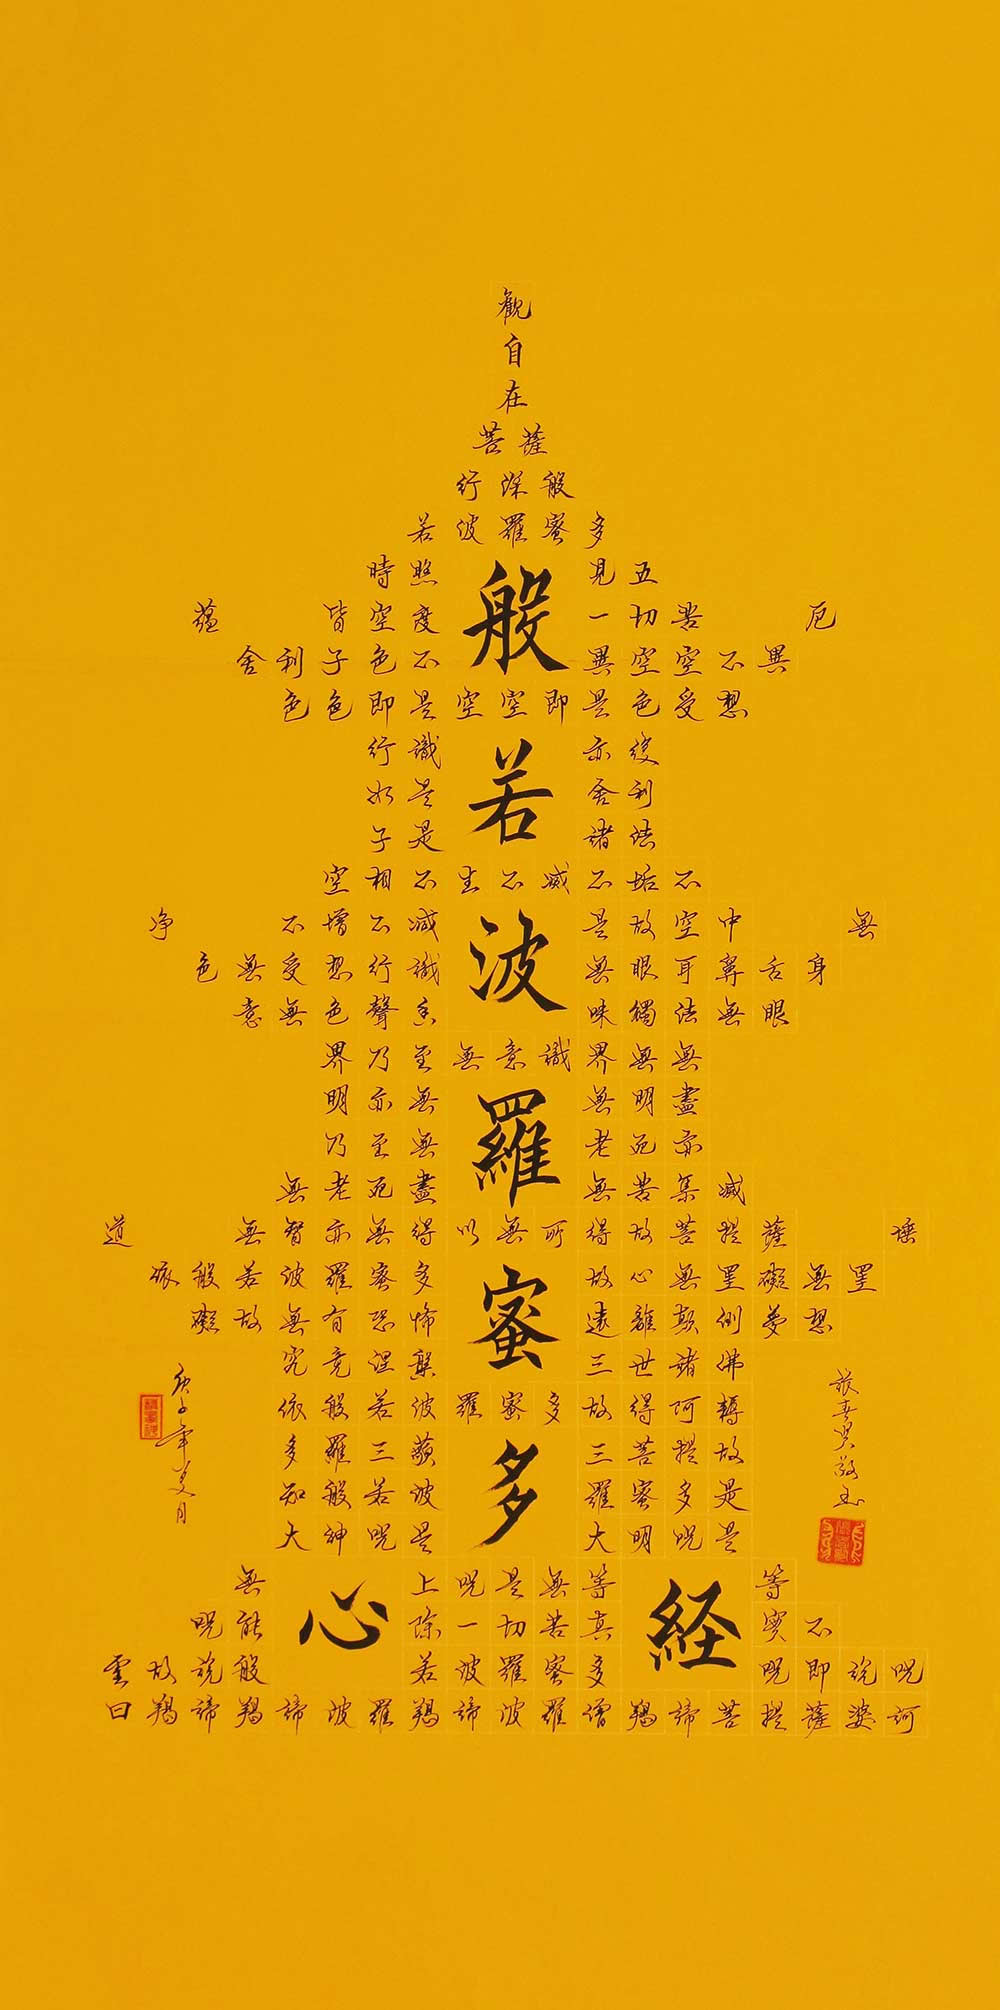 觀
自
在
菩薩
行深般
若波羅蜜多
時照見五
蘊皆空度一切苦厄
舍利子色不異空空不異
色色即是空空即是色受想
行識亦復
如是舍利
子是諸法
空相不生不滅不垢不
净不增不減是故空中無
色無受想行識無眼耳鼻舌身
意無色聲香味觸法無眼
界乃至無意識界無無
明亦無無明盡
乃至無老死亦
無老死盡無苦集滅
道無智亦無得以無所得故菩提薩埵
依般若波羅蜜多故心無罣礙無罣
礙故無有恐怖遠離顛倒夢想
究竟涅槃三世諸佛
依般若波羅蜜多故得阿耨
多羅三藐三菩提故
知般若波羅蜜多是
大神咒是大明咒是
無上咒是無等等
咒能除一切苦真實不
虛故說般若波羅蜜多咒即說咒
曰羯諦羯諦波羅羯諦波羅僧羯諦菩提薩婆訶
般若波羅蜜多
心經
庚子年
月